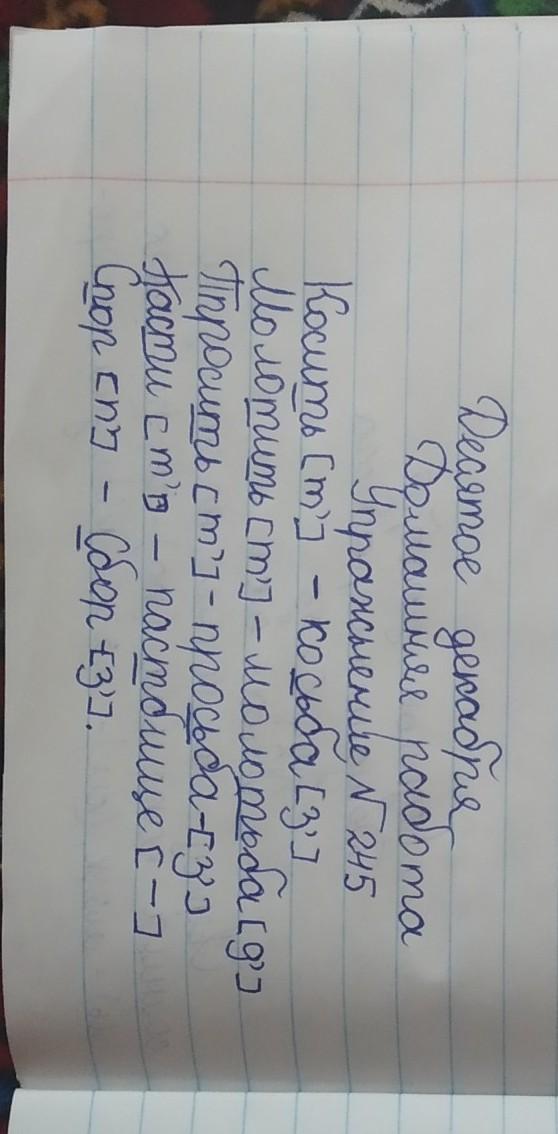 Десятое декабря
Домашняя работа
Упражнение № 245
Косить [т'] - косьба [з']
Молотить [т'] - молотьба [д']
Просить [т'] - просьба - [з']
Пасти [т'] - пастбище [-]
Спор [п] - Сбор - [з'].